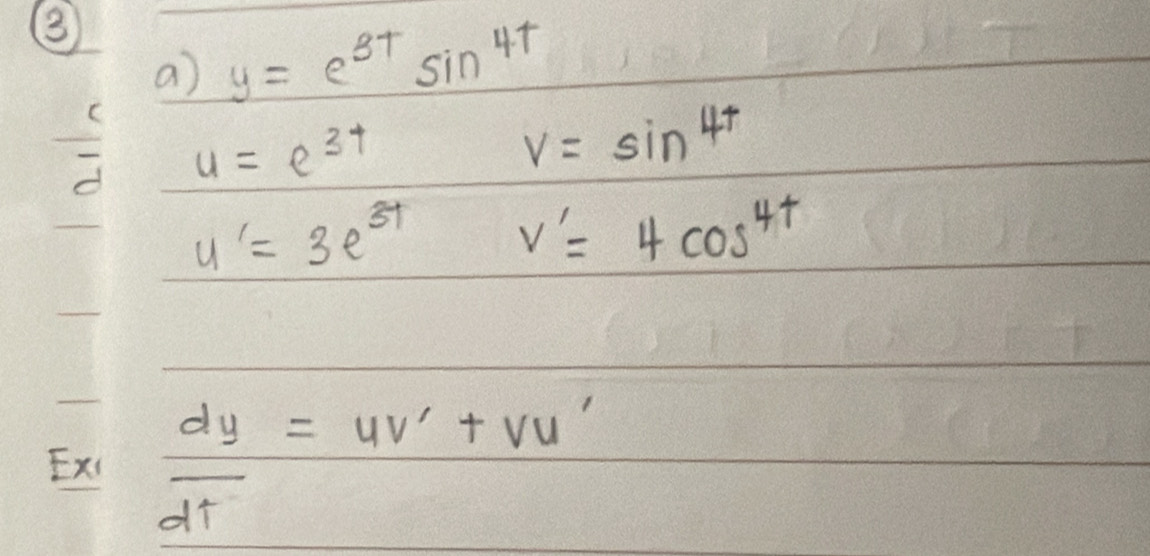 ③
a) y = e^{3t} sin^{4t}
u = e^{3t} v = sin^{4t}
u' = 3e^{3t} v' = 4 cos^{4t}
dy/dt = uv' + vu'